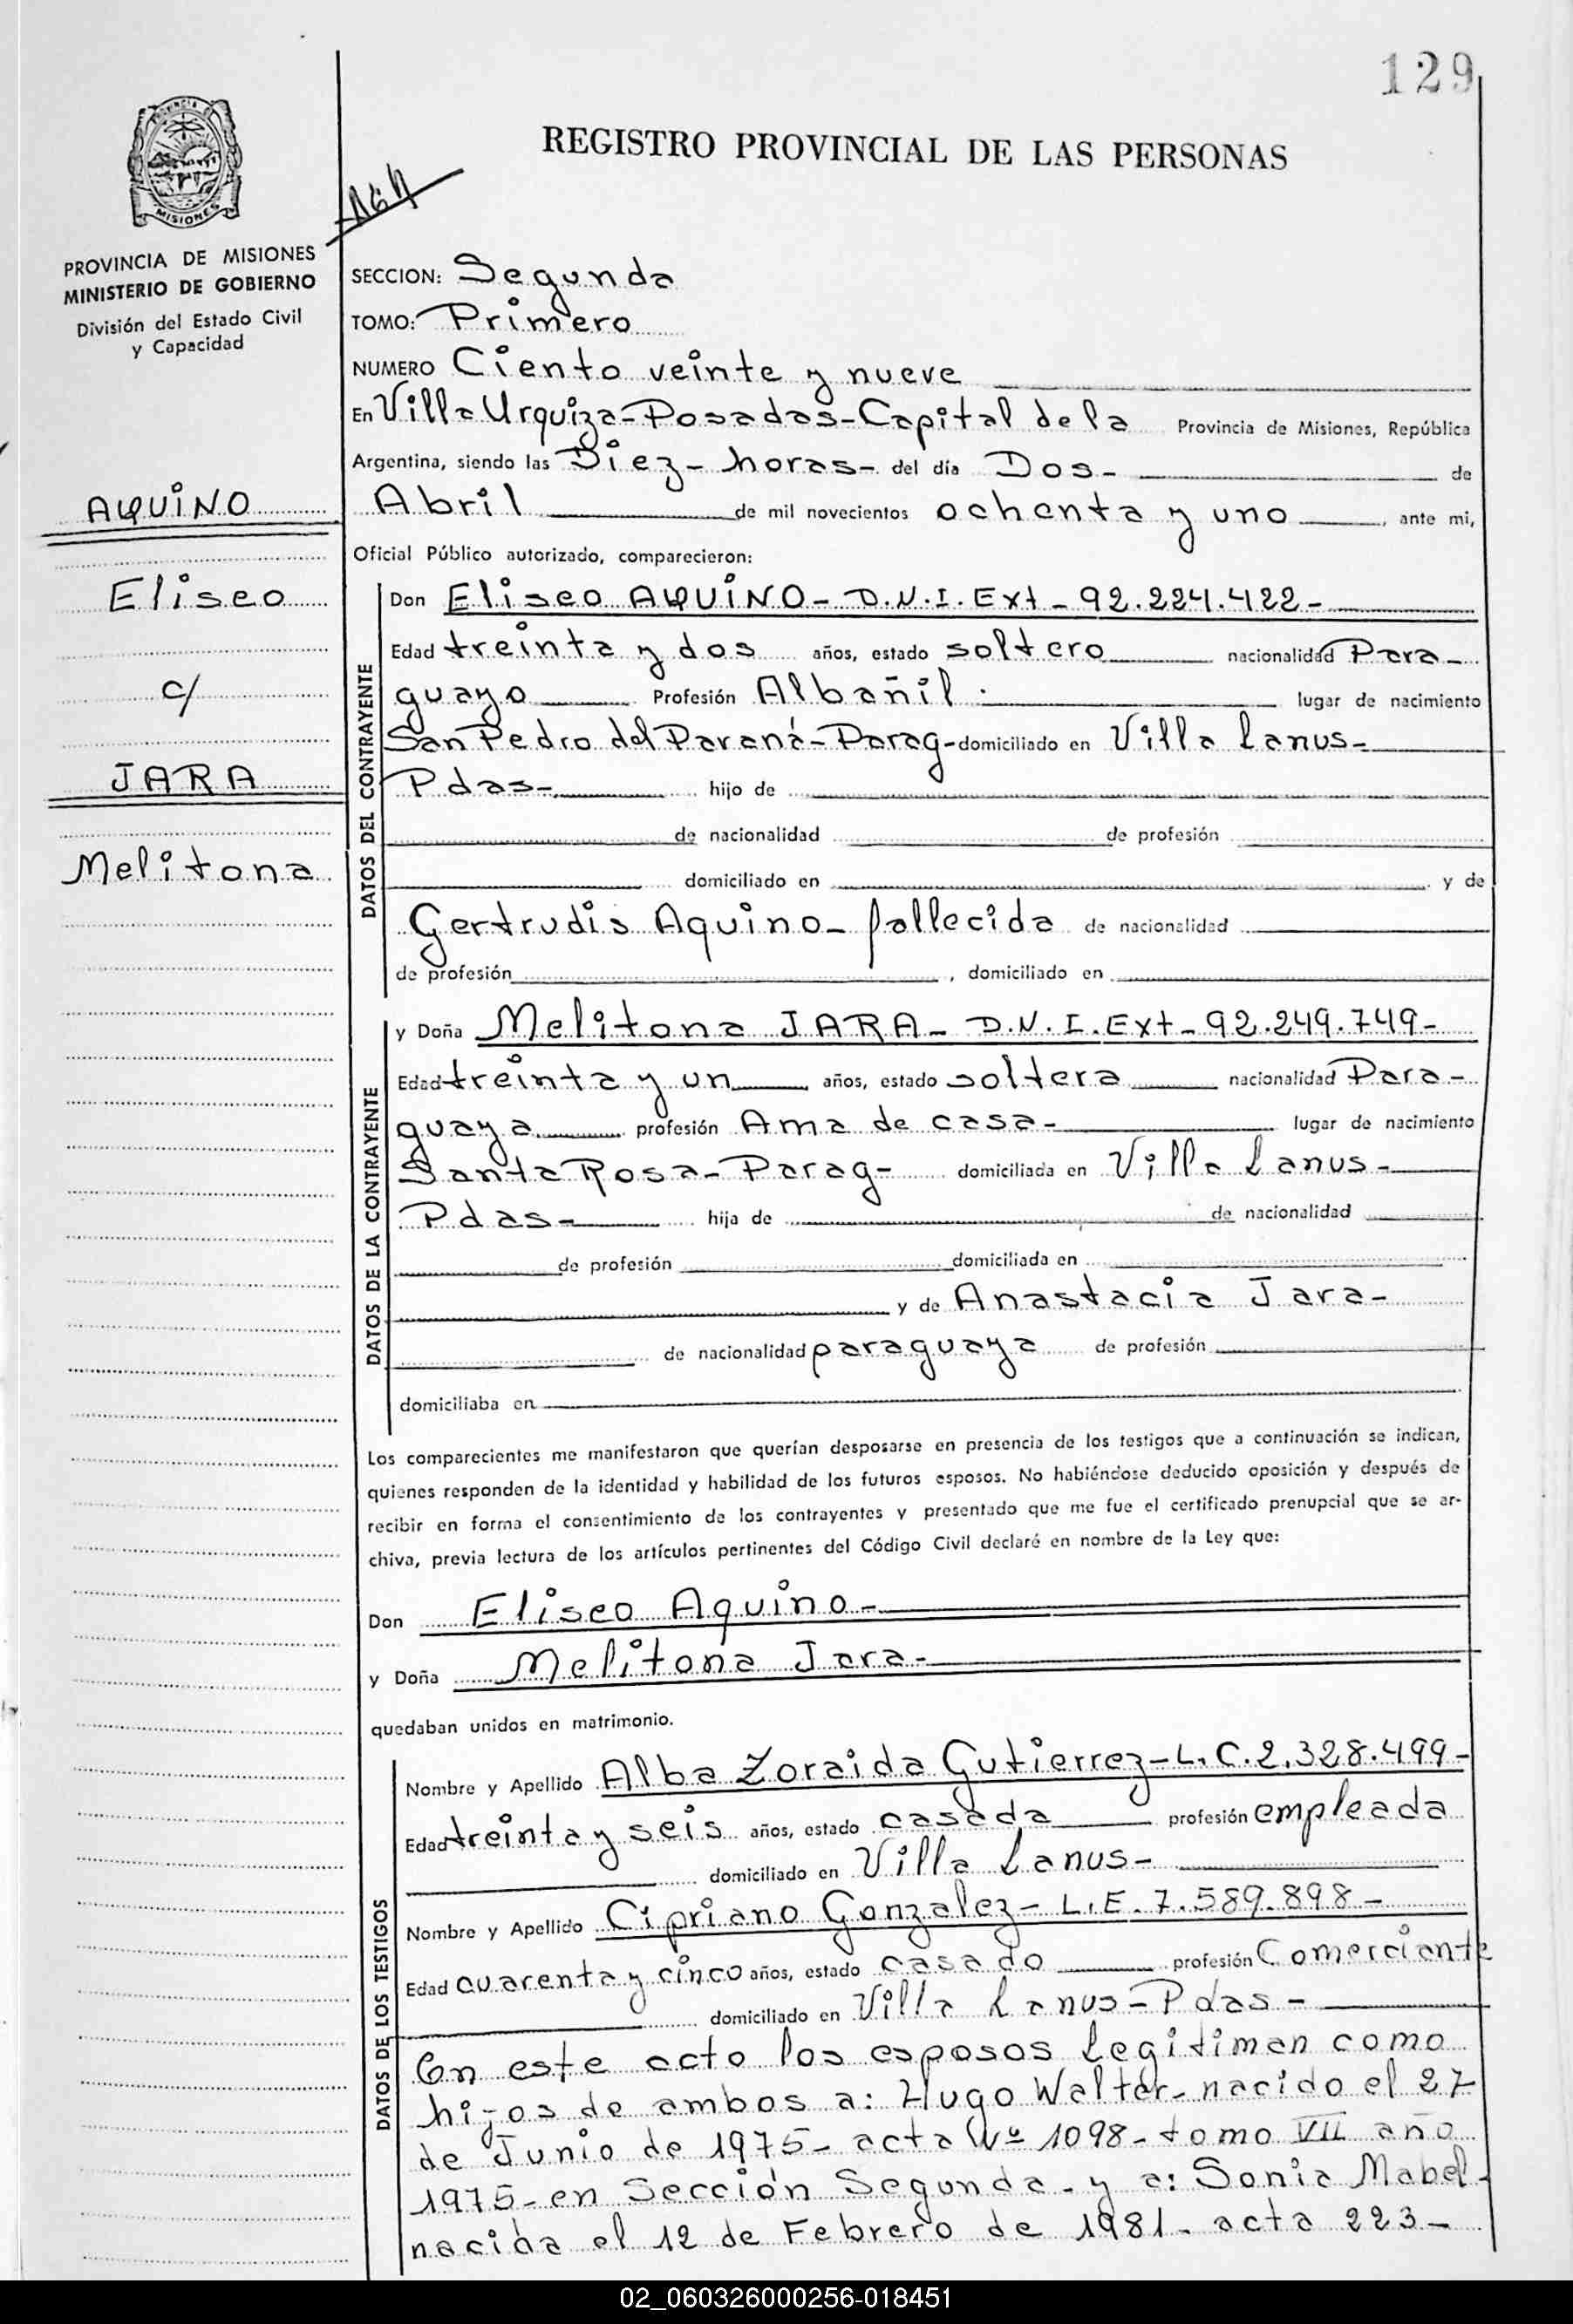 129
REGISTRO PROVINCIAL DE LAS PERSONAS
PROVINCIA
MISIONES
PROVINCIA DE MISIONES
MINISTERIO DE GOBIERNO
División del Estado Civil
y Capacidad
AQUINO
Eliseo
c/
JARA
Melitona
SECCION: Segunda
TOMO: Primero
NUMERO Ciento veinte y nueve
En Villa Urquiza-Posadas-Capital de la Provincia de Misiones, República
Argentina, siendo las Diez- horas- del día Dos- de
Abril de mil novecientos ochenta y uno, ante mi,
Oficial Público autorizado, comparecieron:
DATOS DEL CONTRAYENTE
Don Eliseo AQUINO- D.N.I. Ext - 92.224.422-
Edad treinta y dos años, estado soltero nacionalidad Para-
guayo Profesión Albañil. lugar de nacimiento
San Pedro del Paraná-Parag- domiciliado en Villa Lanus-
Pdas- hijo de
de nacionalidad de profesión
domiciliado en y de
Gertrudis Aquino- fallecida de nacionalidad
de profesión, domiciliado en
DATOS DE LA CONTRAYENTE
y Doña Melitona JARA- D.N.I. Ext- 92.249.749-
Edad treinta y un años, estado soltera nacionalidad Para-
guaya profesión Ama de casa- lugar de nacimiento
Santa Rosa-Parag- domiciliada en Villa Lanus-
Pdas- hija de de nacionalidad
de profesión domiciliada en
y de Anastacia Jara-
de nacionalidad paraguaya de profesión
domiciliaba en
Los comparecientes me manifestaron que querían desposarse en presencia de los testigos que a continuación se indican,
quienes responden de la identidad y habilidad de los futuros esposos. No habiéndose deducido oposición y después de
recibir en forma el consentimiento de los contrayentes y presentado que me fue el certificado prenupcial que se ar-
chiva, previa lectura de los artículos pertinentes del Código Civil declaré en nombre de la Ley que:
Don Eliseo Aquino-
y Doña Melitona Jara-
quedaban unidos en matrimonio.
DATOS DE LOS TESTIGOS
Nombre y Apellido Alba Zoraida Gutierrez-L.C.2.328.499-
Edad treinta y seis años, estado casada profesión empleada
domiciliado en Villa Lanus-
Nombre y Apellido Cipriano Gonzalez- L.E. 7.589.898-
Edad cuarenta y cinco años, estado casado profesión Comerciante
domiciliado en Villa Lanus-Pdas-
En este acto los esposos legitiman como
hijos de ambos a: Hugo Walter- nacido el 27
de Junio de 1975- acta Nº 1098- tomo VII año
1975- en Sección Segunda- y a: Sonia Mabel-
nacida el 12 de Febrero de 1981- acta 223-
02_060326000256-018451